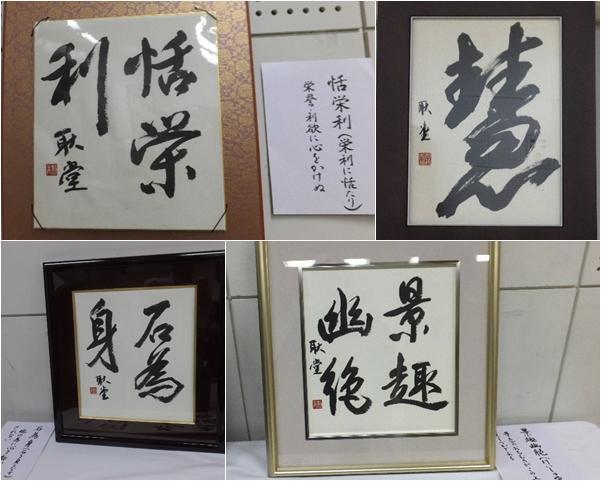 恬栄
利
耿堂
恬栄利（栄利に恬たり）
栄誉・利欲に心をかけぬ
慧
耿堂
石為
身
耿堂
景趣
幽絶
耿堂